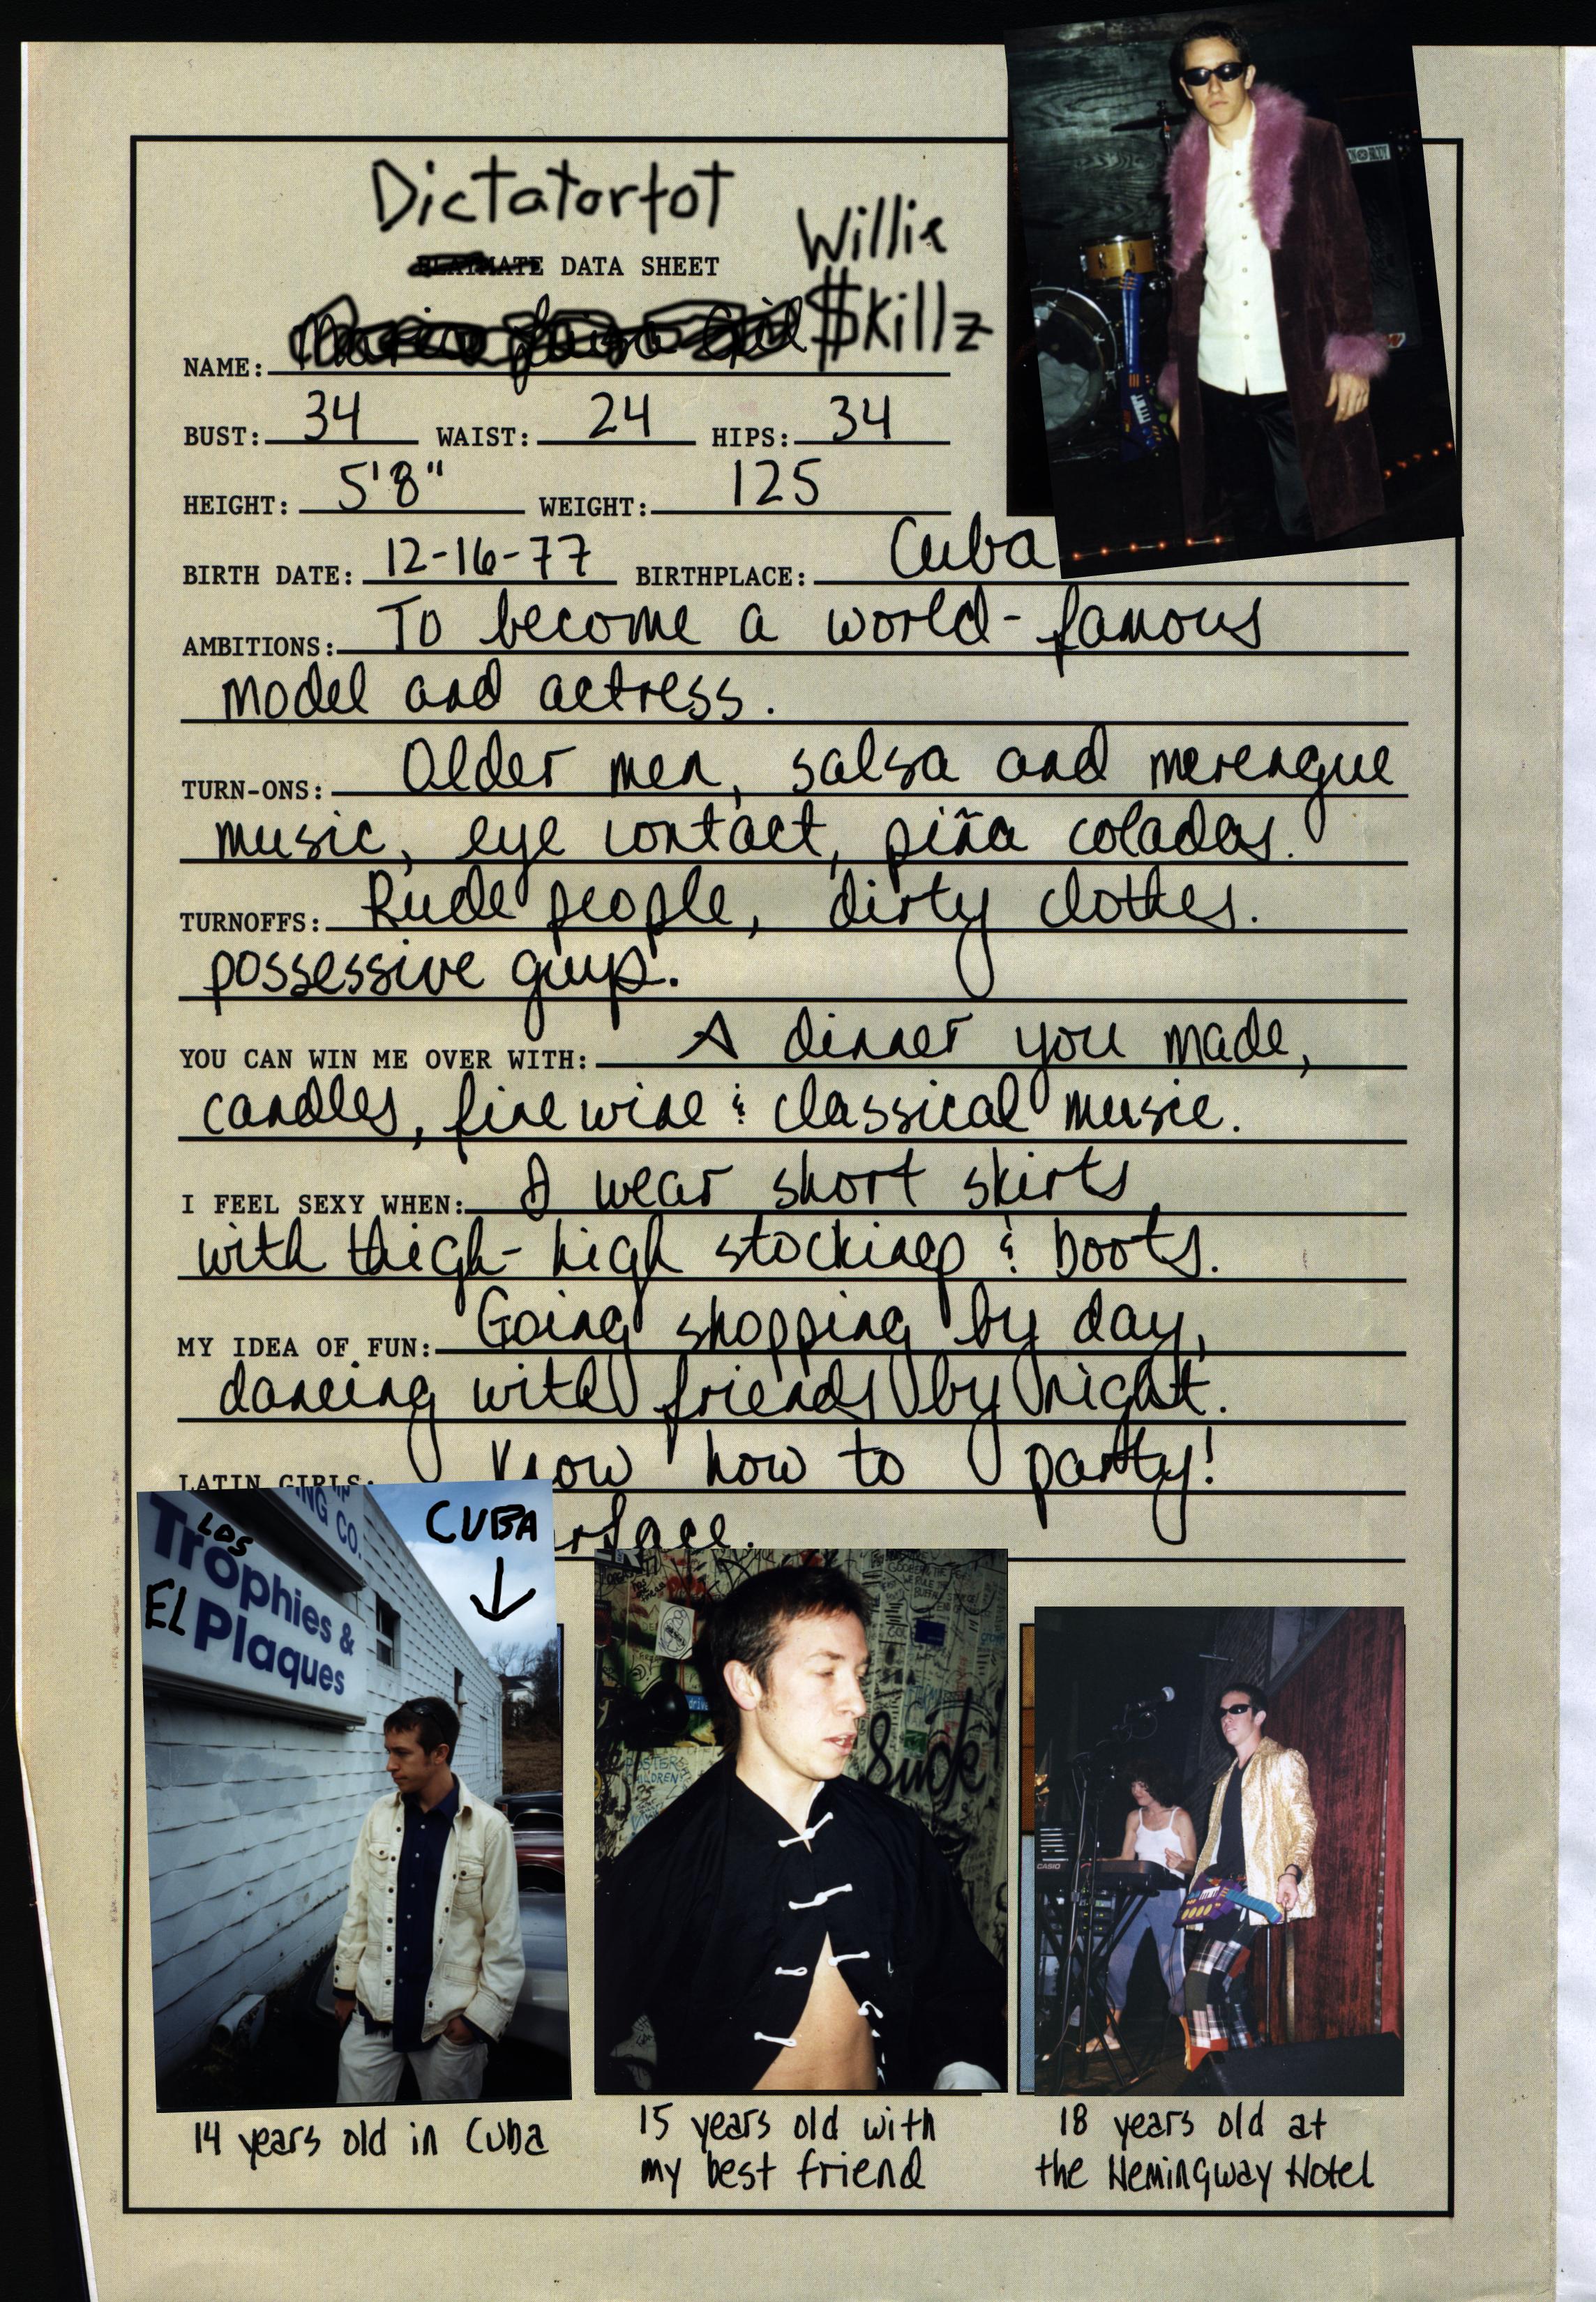 Dictatortot
Willie
PLAYMATE DATA SHEET
$killz
NAME:
BUST: 34 WAIST: 24 HIPS: 34
HEIGHT: 5'8" WEIGHT: 125
BIRTH DATE: 12-16-77 BIRTHPLACE: Cuba
AMBITIONS: To become a world-famous
model and actress.
TURN-ONS: Older men, salsa and merengue
music, eye contact, piña coladas.
TURNOFFS: Rude people, dirty clothes.
possessive guys.
YOU CAN WIN ME OVER WITH: A dinner you made,
candles, fine wine & classical music.
I FEEL SEXY WHEN: I wear short skirts
with thigh-high stockings & boots.
MY IDEA OF FUN: Going shopping by day,
dancing with friends by night.
LATIN GIRLS: Know how to party!
rface.
ING CO.
CUBA
LOS
Trophies &
EL Plaques
Sude
POSTER
CHILDREN
CASIO
14 years old in Cuba
15 years old with
my best friend
18 years old at
the Hemingway Hotel